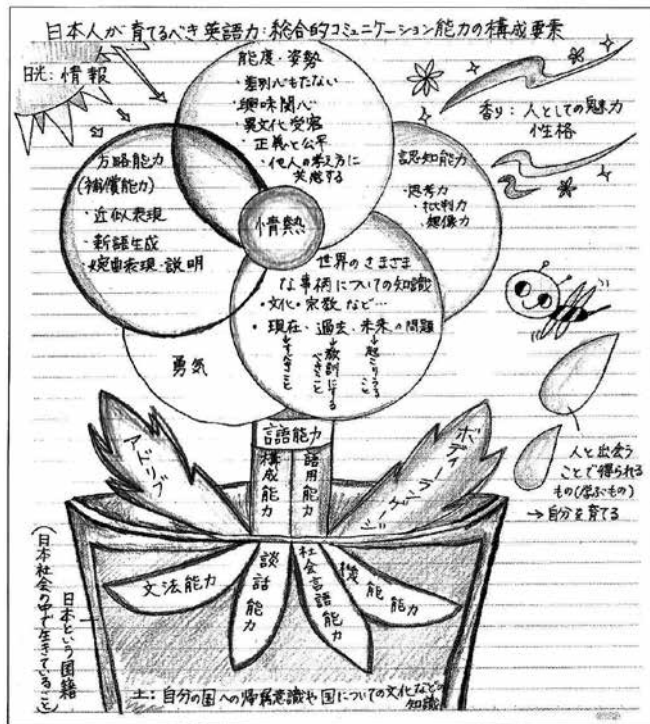 日本人が育てるべき英語力：総合的コミュニケーション能力の構成要素
日光：情報
態度・姿勢
・差別心もたない
・興味関心
・異文化受容
・正義と公平
・他人の考え方に
共感する
香り：人としての魅力
性格
方略能力
(補償能力)
・近似表現
・新語生成
・婉曲表現・説明
認知能力
・思考力
・批判力
・想像力
情熱
世界のさまざま
な事柄についての知識
・文化・宗教など…
・現在、過去、未来の問題
→すべきこと
→教訓にする
べきこと
→起こりうる
こと
勇気
言語能力
構成能力
語用能力
アドリブ
ボディーランゲージ
人と出会う
ことで得られる
もの(学ぶもの)
→自分を育てる
文法能力
談話能力
社会言語能力
機能能力
日本という国籍
(日本社会の中で生きていること)
土：自分の国への帰属意識や国についての文化などの
知識